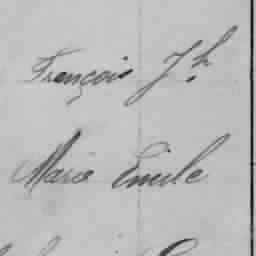 François Jh
Marie Emile